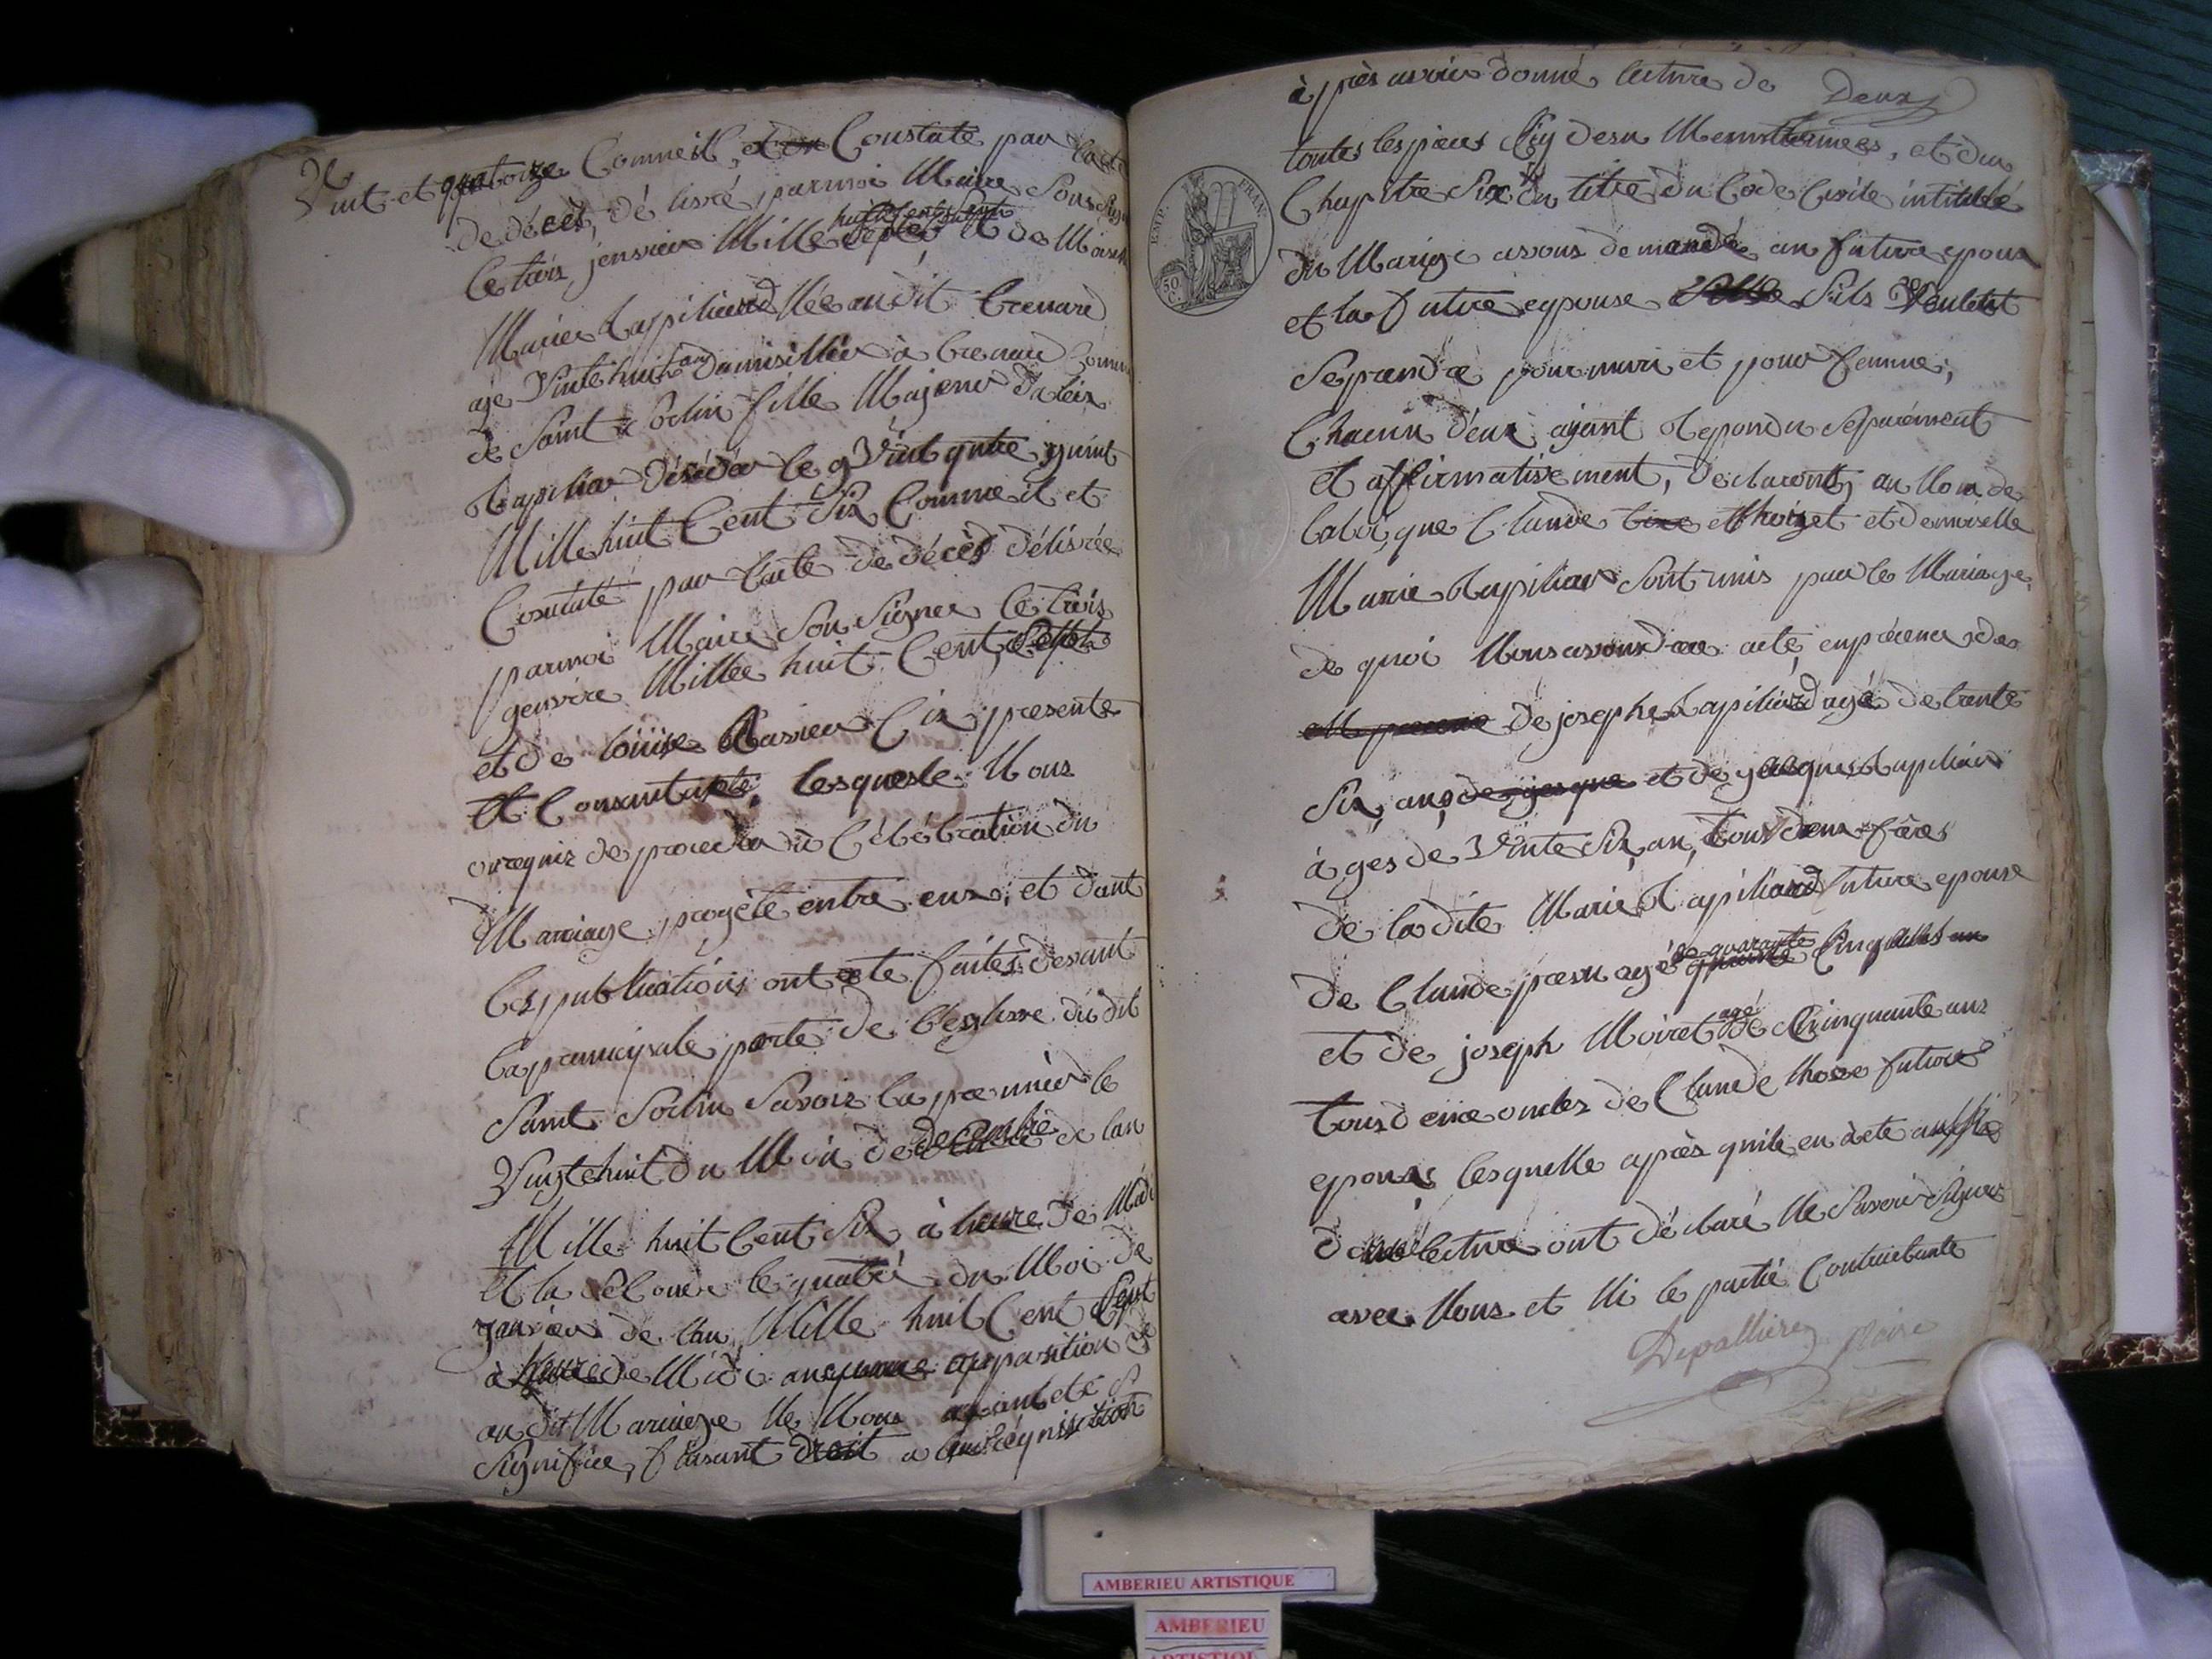 Vint et quatorze Comme il, et du Constaté par l'acte
de décès, dé livré, par moi Maire Sous Sign
Le trois jenvier Mille huit cents sept et de
Marie Rapiliard Née au dit Brenard
agé Vinte huit ans Damisilliée à Brenard Comm
de Saint Sorlin fille Majeure Daleis
Rapiliar Désédée le Vint qutre juint
Mille huit Cent Six Comme il et
Constaté par l'acte de décès délivrée
par moi Maire Son Signer Le trois
genvire Mille huit Cent Sept
et de loüise Ravier Ci presente
Et Consantante, lesquele Nous
on requis de proceder à Célébration du
Mariage progèté entre eux, et dont
les publications ont ete faites devant
la principale porte de l'eglisse du dit
Saint Sorlin Savoir la premiere le
Vingt huit du Moi de decembre de lan
Mille huit Cent Six à heure de Midi
Et la Seconde le quatre du Moi de
janvier de lan Mille huit Cent Sept
à heure de Midi aucunne apparsition
au dit Mariage Ne Nous ayant eté
Signifiée, faisant droit a leur réquisition
à près avoir donné lecture de
Deux
toutes les pieces Ciy desu Mentionnées, et du
Chapitre Six du titre du Code Civile intitulé
EMP. FRAN.
50 C.
du Marige avons demandé au future epoux
et la future epouse Sils Veulent
Seprendre pour mari et pour femme,
Chacun d'eux ayant Repondu Séparément
et affirmativement, Declarons au Nom de
la loi, que Claude et demoiselle
Marie Rapiliar Sont unis par le Mariage
de quoi Nous avons acte en présence de
de josephe Rapiliard agé de trente
Six ans et de jacques Rapiliard
à ges de Vinte Six an, tous deux frères
de la dite Marie Rapiliard future epouse
de Claude agé de quarante Cinq
et de joseph Moiret agé de Cinquante ans
tous deux oncles de Claude future
epoux, lesquelle après quile en à ete aussi
donné lecture ont déclaré Ne Savoir Signer
avec Nous et Ni le partie Contractante
Depallière Maire
AMBERIEU ARTISTIQUE
AMBERIEU
ARTISTIQUE